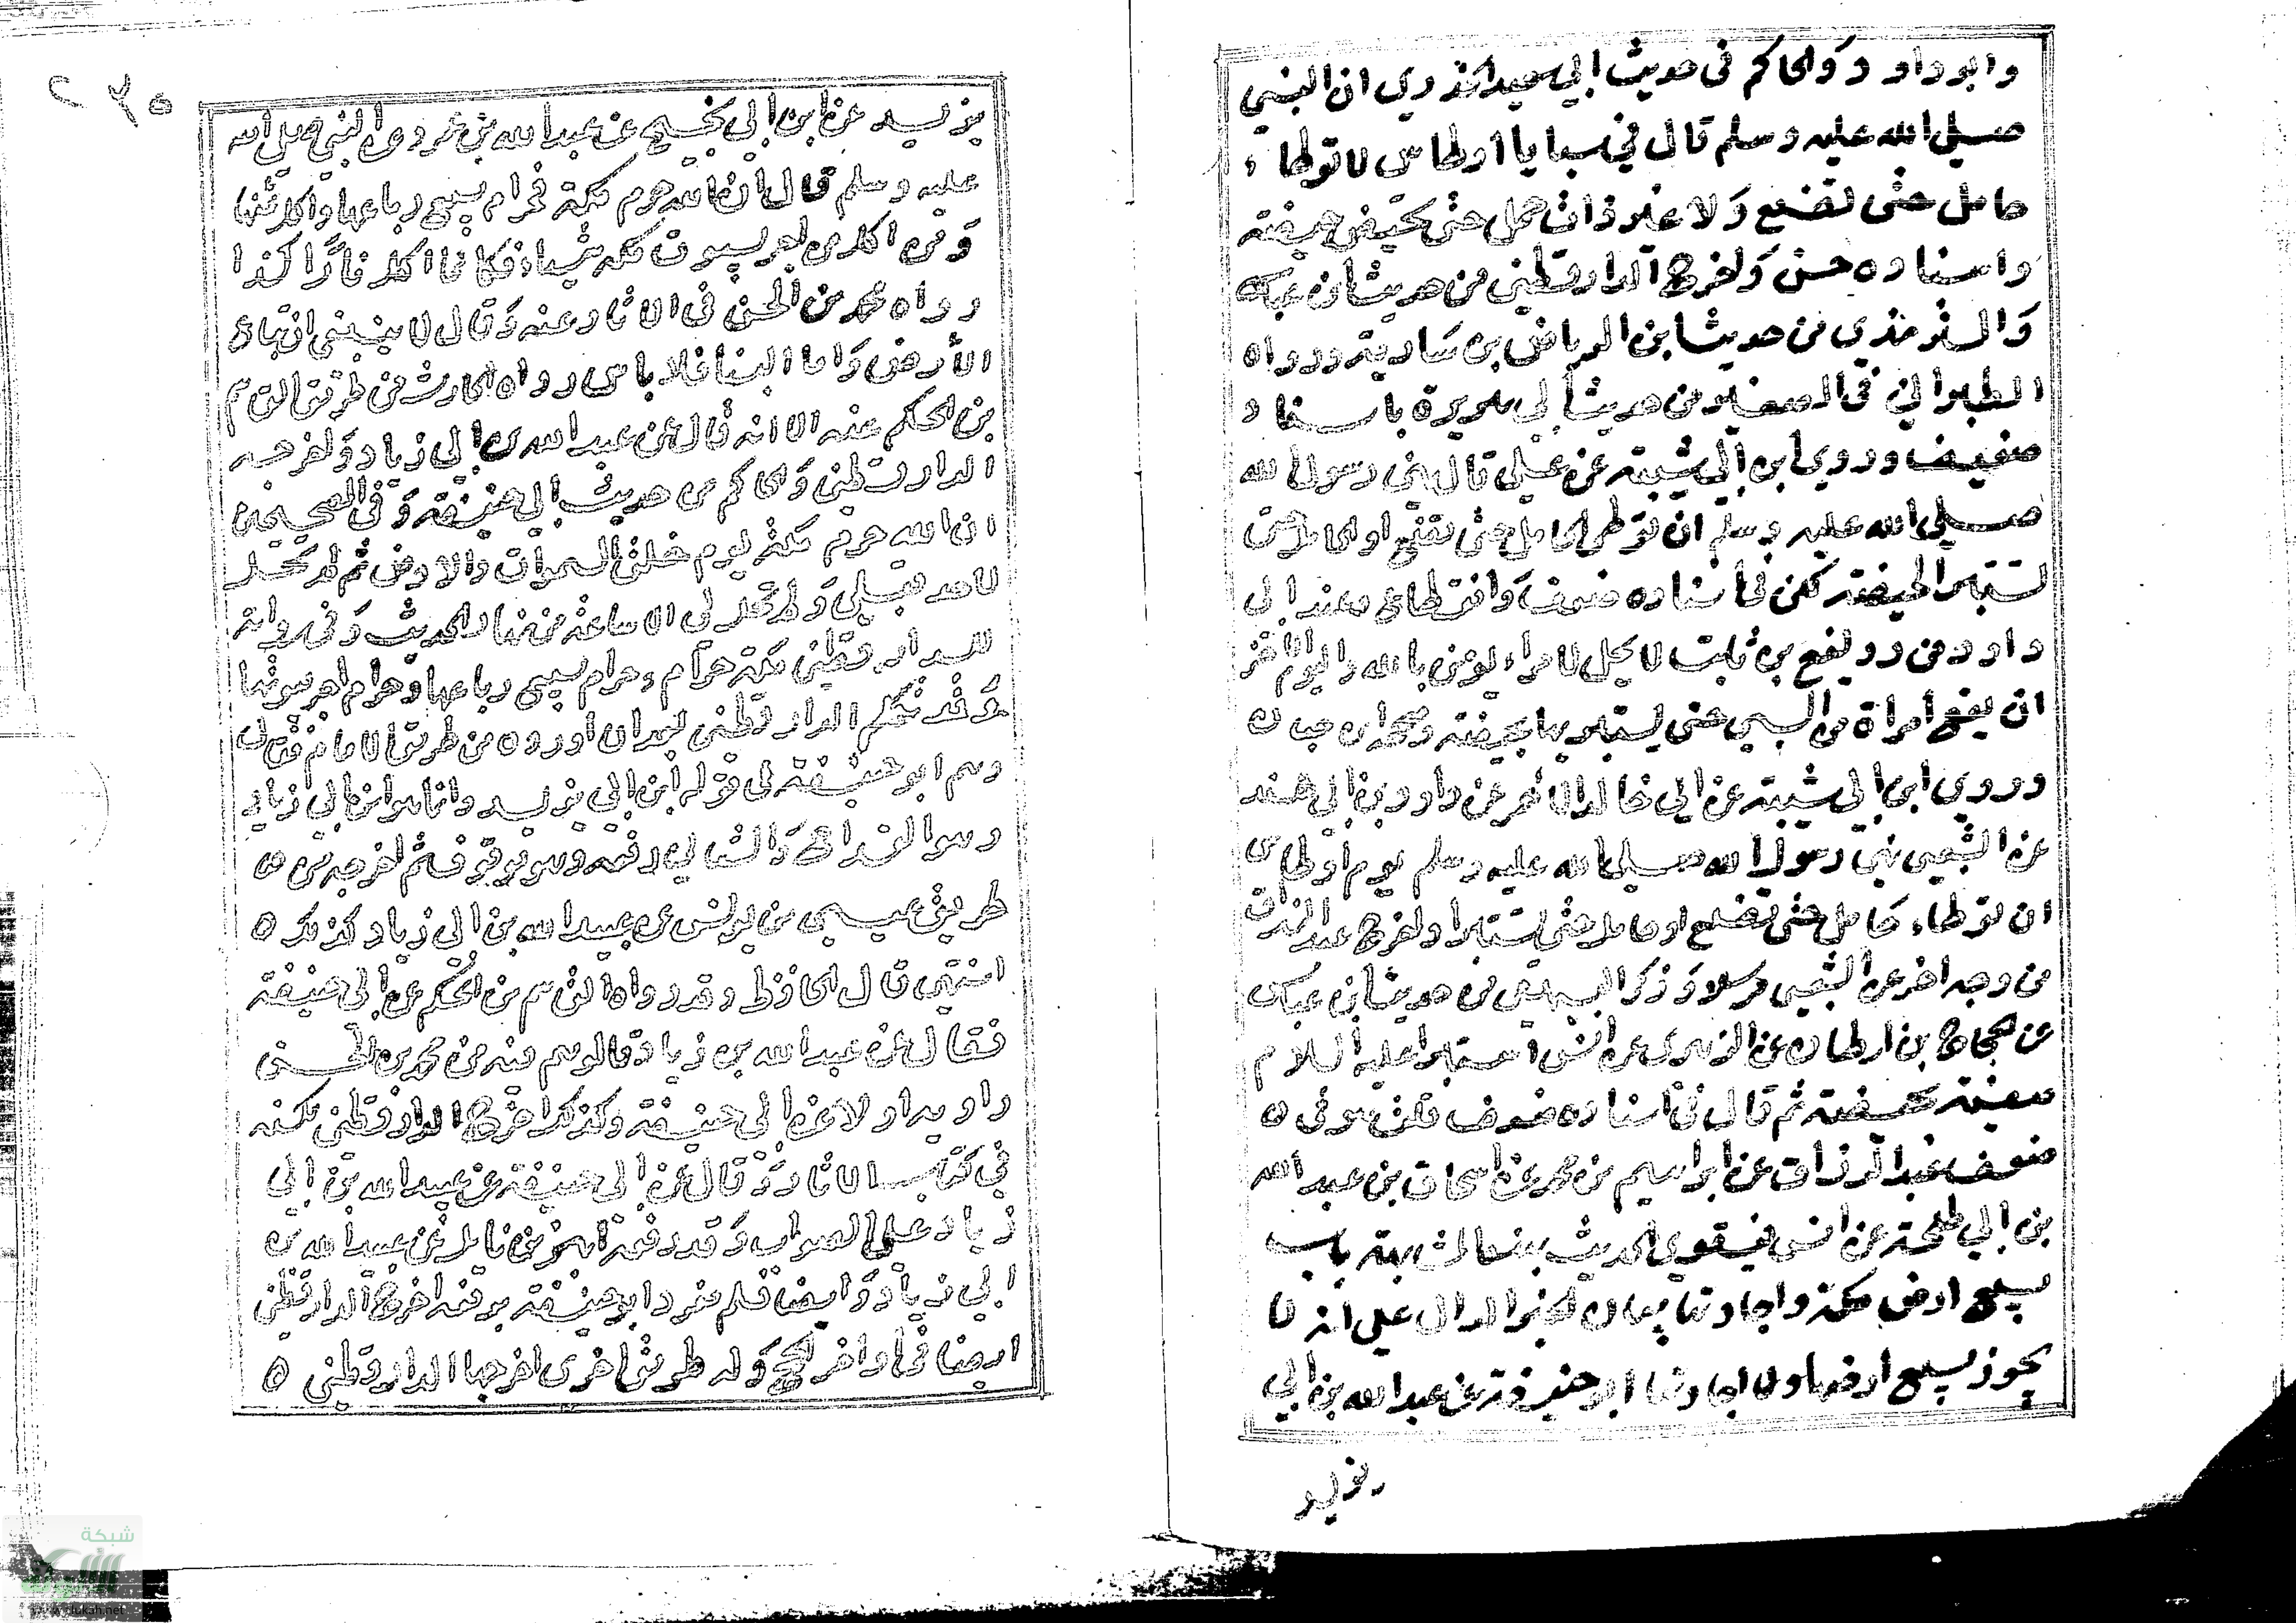 وابوداود والحاكم في حديث ابي سعيد الخدري ان النبي
صلى الله عليه وسلم قال في سبايا اوطاس لا توطاء
حامل حتى تضع ولا غير ذات حمل حتى تحيض حيضة
واسناده حسن واخرج الدارقطني من حديث ابن عباس
والترمذي من حديث ابن العرباض بن سارية ورواه
الطبراني في الصغير من حديث ابي هريرة باسناد
ضعيف وروي ابن ابي شيبة عن علي قال نهي رسول الله
صلى الله عليه وسلم ان توطى الحامل حتى تضع او الحامل حتى
تستبرا الحيضة لكن في اسناده ضعف وانقطاع وعند ابي
داود من رويفع بن ثابت لا يحل لامراء يومن بالله واليوم الاخر
ان يقع امراة من السبي حتى يستبريها بحيضة وصححه ابن حبان
وروي ابن ابي شيبة عن ابي خالد الاحمر عن داود بن ابي هند
عن الشعبي نهي رسول الله صلى الله عليه وسلم يوم اوطاس
ان توطاء حامل حتى تضع او حامل حتى تستبرا واخرج عبد الرزاق
من وجه اخر عن الشعبي مرسلا وذكر البيهقي من حديث ابن عباس
عن حجاج بن ارطاه عن الزهري عن انس استبرا عليه السلام
صفية بحيضة ثم قال في اسناده ضعف قلت هو في
ضعف عبد الرزاق عن ابراهيم بن محمد عن اسحاق بن عبد الله
بن ابي طلحة عن انس فيقوي الحديث بمتابعته باب
بيع ارض مكة واجارتها بيان الخبر الدال علي انه لا
يجوز بيع ارضها ولا اجارتها ابو حنيفة عن عبد الله بن ابي
يزيد
٢٦٥
يزيد عن ابن ابي نجيح عن عبد الله بن عمر وعن النبي صلى الله
عليه وسلم قال ان الله حرم مكة فحرام بيع رباعها واكل ثمنها
ومن اكل من اجر بيوت مكة شياء فكانما اكل نارا كذا
رواه محمد بن الحسن في الاثار عنه وقال لا ينبغي ان تباع
الارض واما البنا فلا باس رواه الحارث من طريق القاسم
بن الحكم عنه الا انه قال عن عبد الله بن ابي زياد واخرجه
الدارقطني والحاكم من حديث ابي حنيفة وفي الصحيحين
ان الله حرم مكة يوم خلق السموات والارض ثم لم تحل
لاحد قبلي ولم تحل لي الا ساعة من نهار الحديث وفي رواية
للدارقطني مكة حرام وحرام بيع رباعها وحرام اجر بيوتها
وقد تكلم الدارقطني بعد ان اورده من طريق الامام فقال
وهم ابو حنيفة في قوله ابن ابي يزيد وانما هو ابن ابي زياد
وهو القداح والثاني رفعه وهو موقوف ثم اخرجه من
طريق عيسى بن يونس عن عبيد الله بن ابي زياد كذلك
انتهى قال الحافظ وقد رواه القاسم بن الحكم عن ابي حنيفة
فقال عن عبيد الله بن زياد قالوهم فيه من محمد بن الحسن
راويه اولا عن ابي حنيفة وكذلك اخرجه الدارقطني لكنه
في كتاب الاثار وقال عن ابي حنيفة عن عبيد الله بن ابي
زياد على الصواب وقد رفعه ايمن بن نابل عن عبيد الله بن
ابي زياد وايضا فلم ينفرد ابو حنيفة برفعه اخرج الدارقطني
ايضا في اواخر الحج وله طريق اخرى اخرجها الدارقطني
شبكة
الألوكة
www.alukah.net